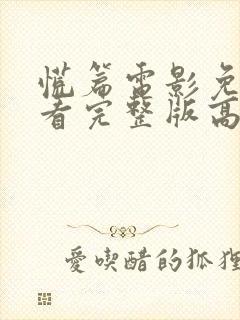 慌篇電影免
看完整版高
愛喫醋的狐狸